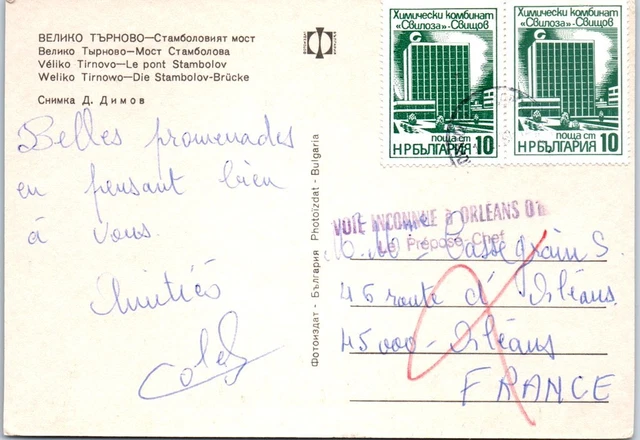 ВЕЛИКО ТЪРНОВО—Стамболовият мост
Велико Тырново—Мост Стамболова
Véliko Tirnovo—Le pont Stambolov
Weliko Tirnowo—Die Stambolov-Brücke
Снимка Д. Димов
Belles promenades
en pensant bien
à vous.
Amitiés
Фотоиздат - България Photoizdat - Bulgaria
Химически комбинат
«Свилоза»-Свищов
поща ст
НР БЪЛГАРИЯ 10
Химически комбинат
«Свилоза»-Свищов
поща ст
НР БЪЛГАРИЯ 10
VOIE INCONNUE à ORLEANS 01
Le Préposé Chef
46 route d'Orléans
45000 - Orléans
FRANCE